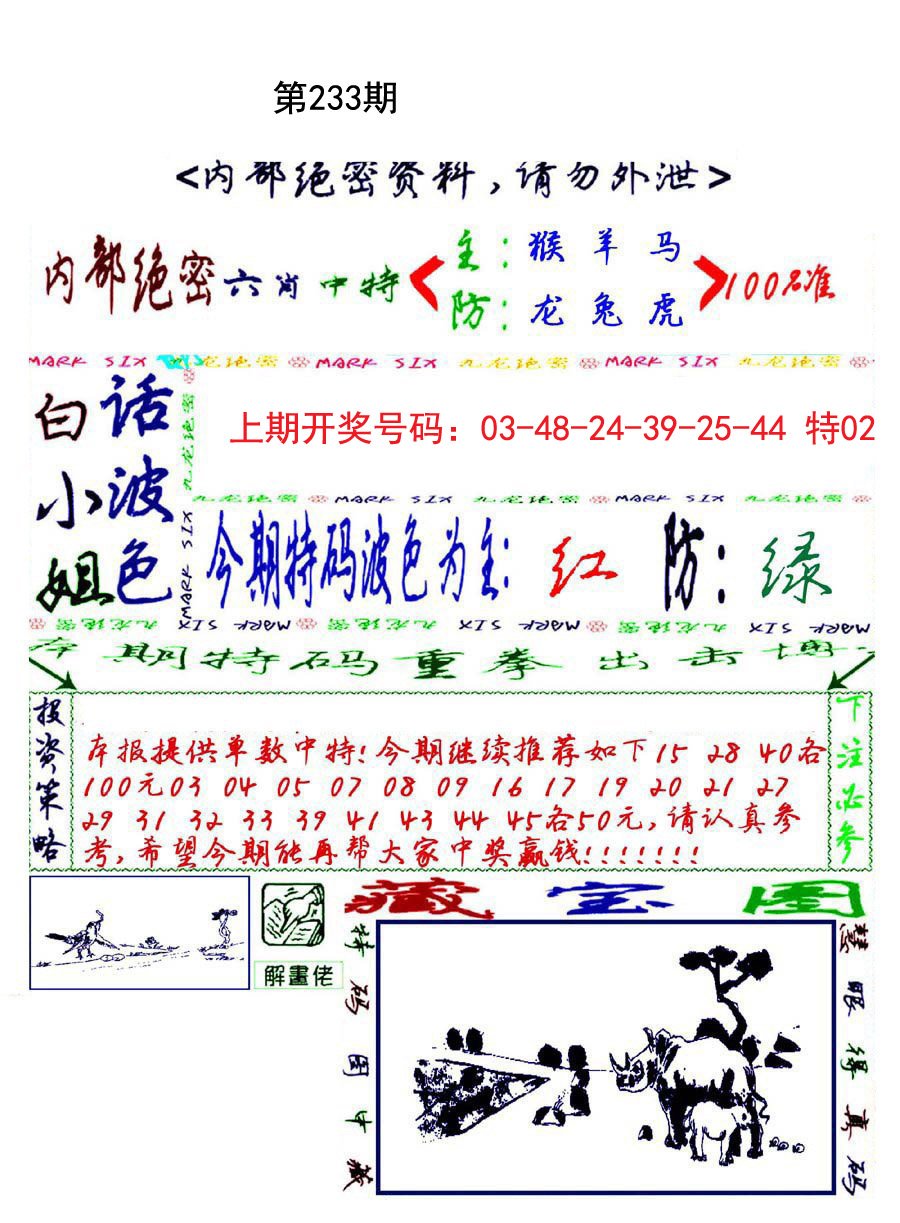 第233期
<内部绝密资料,请勿外泄>
内部绝密六肖中特
主:猴羊马
防:龙兔虎
100%准
MARK SIX 九龙绝密 MARK SIX 九龙绝密 MARK SIX 九龙绝密
白话
小波
姐色
九龙绝密 MARK SIX
上期开奖号码：03-48-24-39-25-44 特02
九龙绝密 MARK SIX 九龙绝密 MARK SIX 九龙绝密
今期特码波色为主:红 防:绿
九龙绝密 MARK SIX 九龙绝密 MARK SIX 九龙绝密 MARK SIX
本期特码重拳出击博
投资策略
本报提供单数中特!今期继续推荐如下15 28 40各
100元03 04 05 07 08 09 16 17 19 20 21 27
29 31 32 33 39 41 43 44 45各50元,请认真参
考,希望今期能再帮大家中奖赢钱!!!!!!!
下注必参
解畫佬
藏宝图
特码图中藏
慧眼得真码